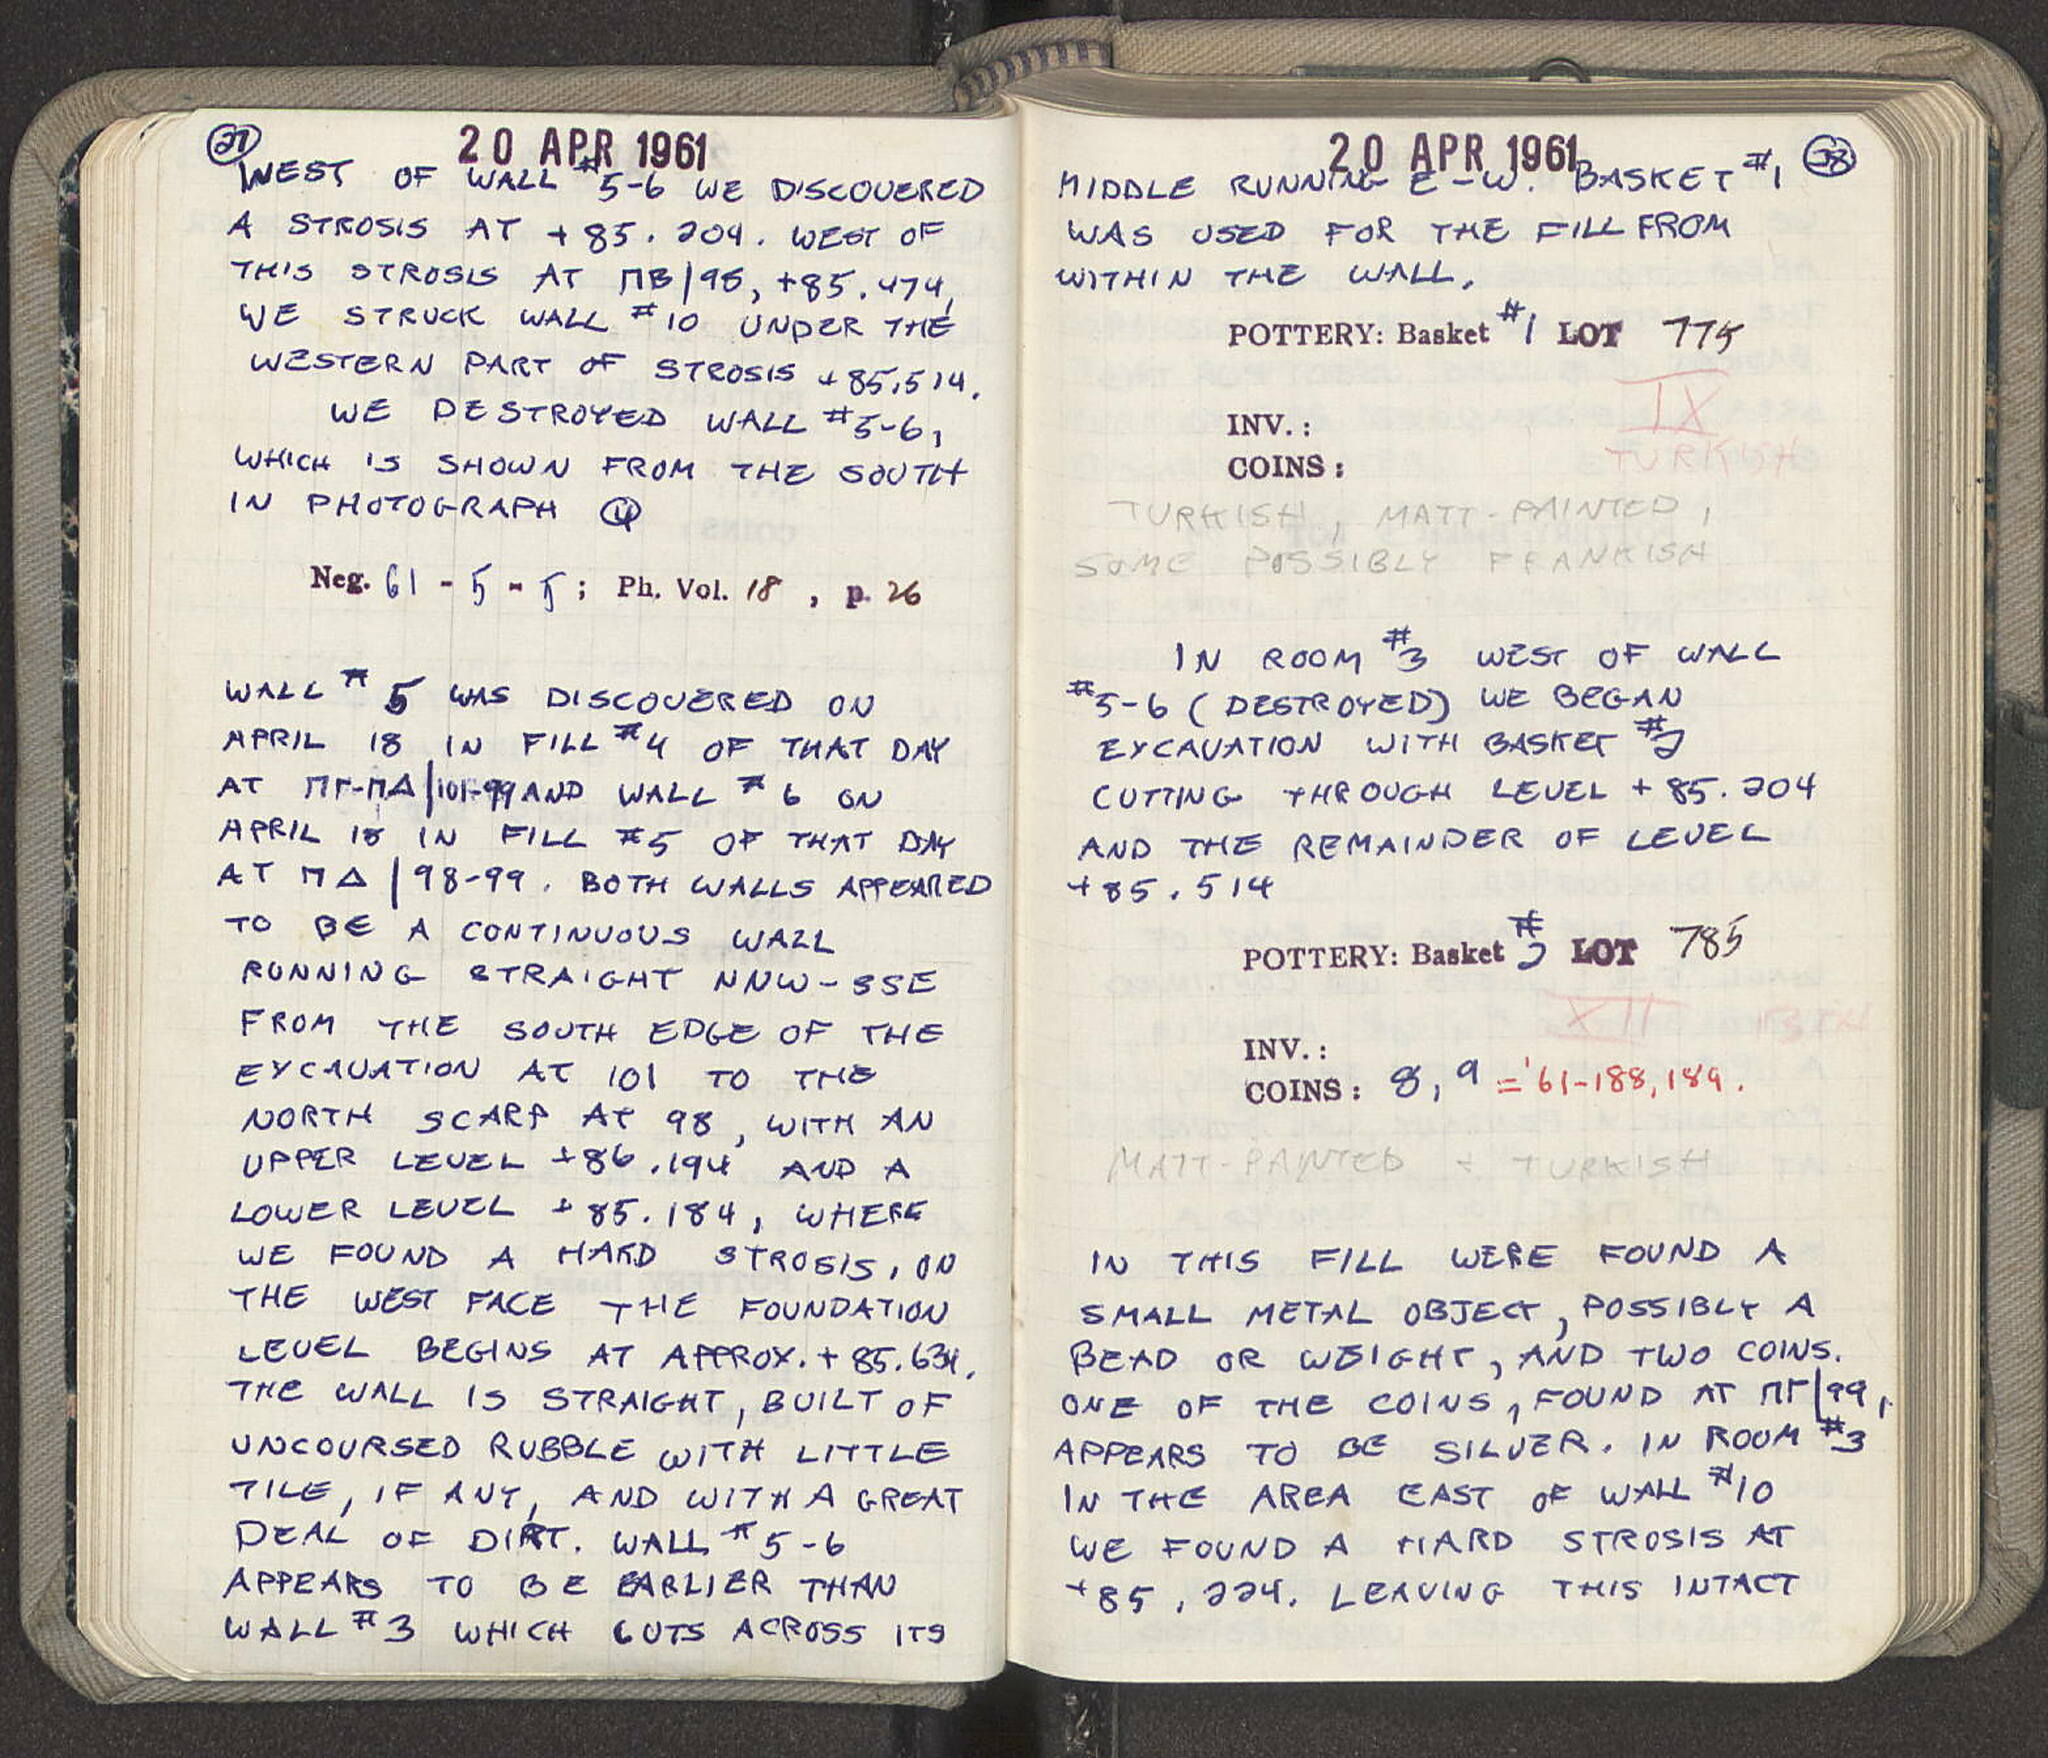 37
20 APR 1961
WEST OF WALL #5-6 WE DISCOVERED
A STROSIS AT +85.204. WEST OF
THIS STROSIS AT ΠΒ/98, +85.474,
WE STRUCK WALL #10 UNDER THE
WESTERN PART OF STROSIS +85.514.
WE DESTROYED WALL #5-6,
WHICH IS SHOWN FROM THE SOUTH
IN PHOTOGRAPH 4
Neg. 61 - 5 - 5; Ph. Vol. 18, p. 26
WALL #5 WAS DISCOVERED ON
APRIL 18 IN FILL #4 OF THAT DAY
AT ΠΓ-ΠΔ/101-99 AND WALL #6 ON
APRIL 18 IN FILL #5 OF THAT DAY
AT ΠΔ/98-99. BOTH WALLS APPEARED
TO BE A CONTINUOUS WALL
RUNNING STRAIGHT NNW-SSE
FROM THE SOUTH EDGE OF THE
EXCAVATION AT 101 TO THE
NORTH SCARP AT 98, WITH AN
UPPER LEVEL +86.194 AND A
LOWER LEVEL +85.184, WHERE
WE FOUND A HARD STROSIS, ON
THE WEST FACE THE FOUNDATION
LEVEL BEGINS AT APPROX. +85.634.
THE WALL IS STRAIGHT, BUILT OF
UNCOURSED RUBBLE WITH LITTLE
TILE, IF ANY, AND WITH A GREAT
DEAL OF DIRT. WALL #5-6
APPEARS TO BE EARLIER THAN
WALL #3 WHICH CUTS ACROSS ITS
20 APR 1961
38
MIDDLE RUNNING E-W. BASKET #1
WAS USED FOR THE FILL FROM
WITHIN THE WALL.
POTTERY: Basket #1 LOT 775
IX
INV.:
TURKISH
COINS:
TURKISH, MATT-PAINTED,
SOME POSSIBLY FRANKISH
IN ROOM #3 WEST OF WALL
#5-6 (DESTROYED) WE BEGAN
EXCAVATION WITH BASKET #2
CUTTING THROUGH LEVEL +85.204
AND THE REMAINDER OF LEVEL
+85.514
POTTERY: Basket #2 LOT 785
XII
INV.:
COINS: 8, 9 = '61-188, 189.
MATT-PAINTED + TURKISH
IN THIS FILL WERE FOUND A
SMALL METAL OBJECT, POSSIBLY A
BEAD OR WEIGHT, AND TWO COINS.
ONE OF THE COINS, FOUND AT ΠΓ/99,
APPEARS TO BE SILVER. IN ROOM #3
IN THE AREA EAST OF WALL #10
WE FOUND A HARD STROSIS AT
+85.224. LEAVING THIS INTACT